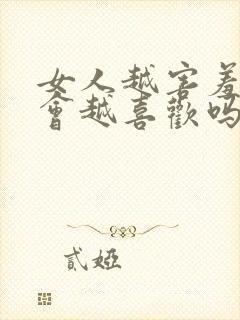 女人越害羞
會越喜歡吗
貳婭